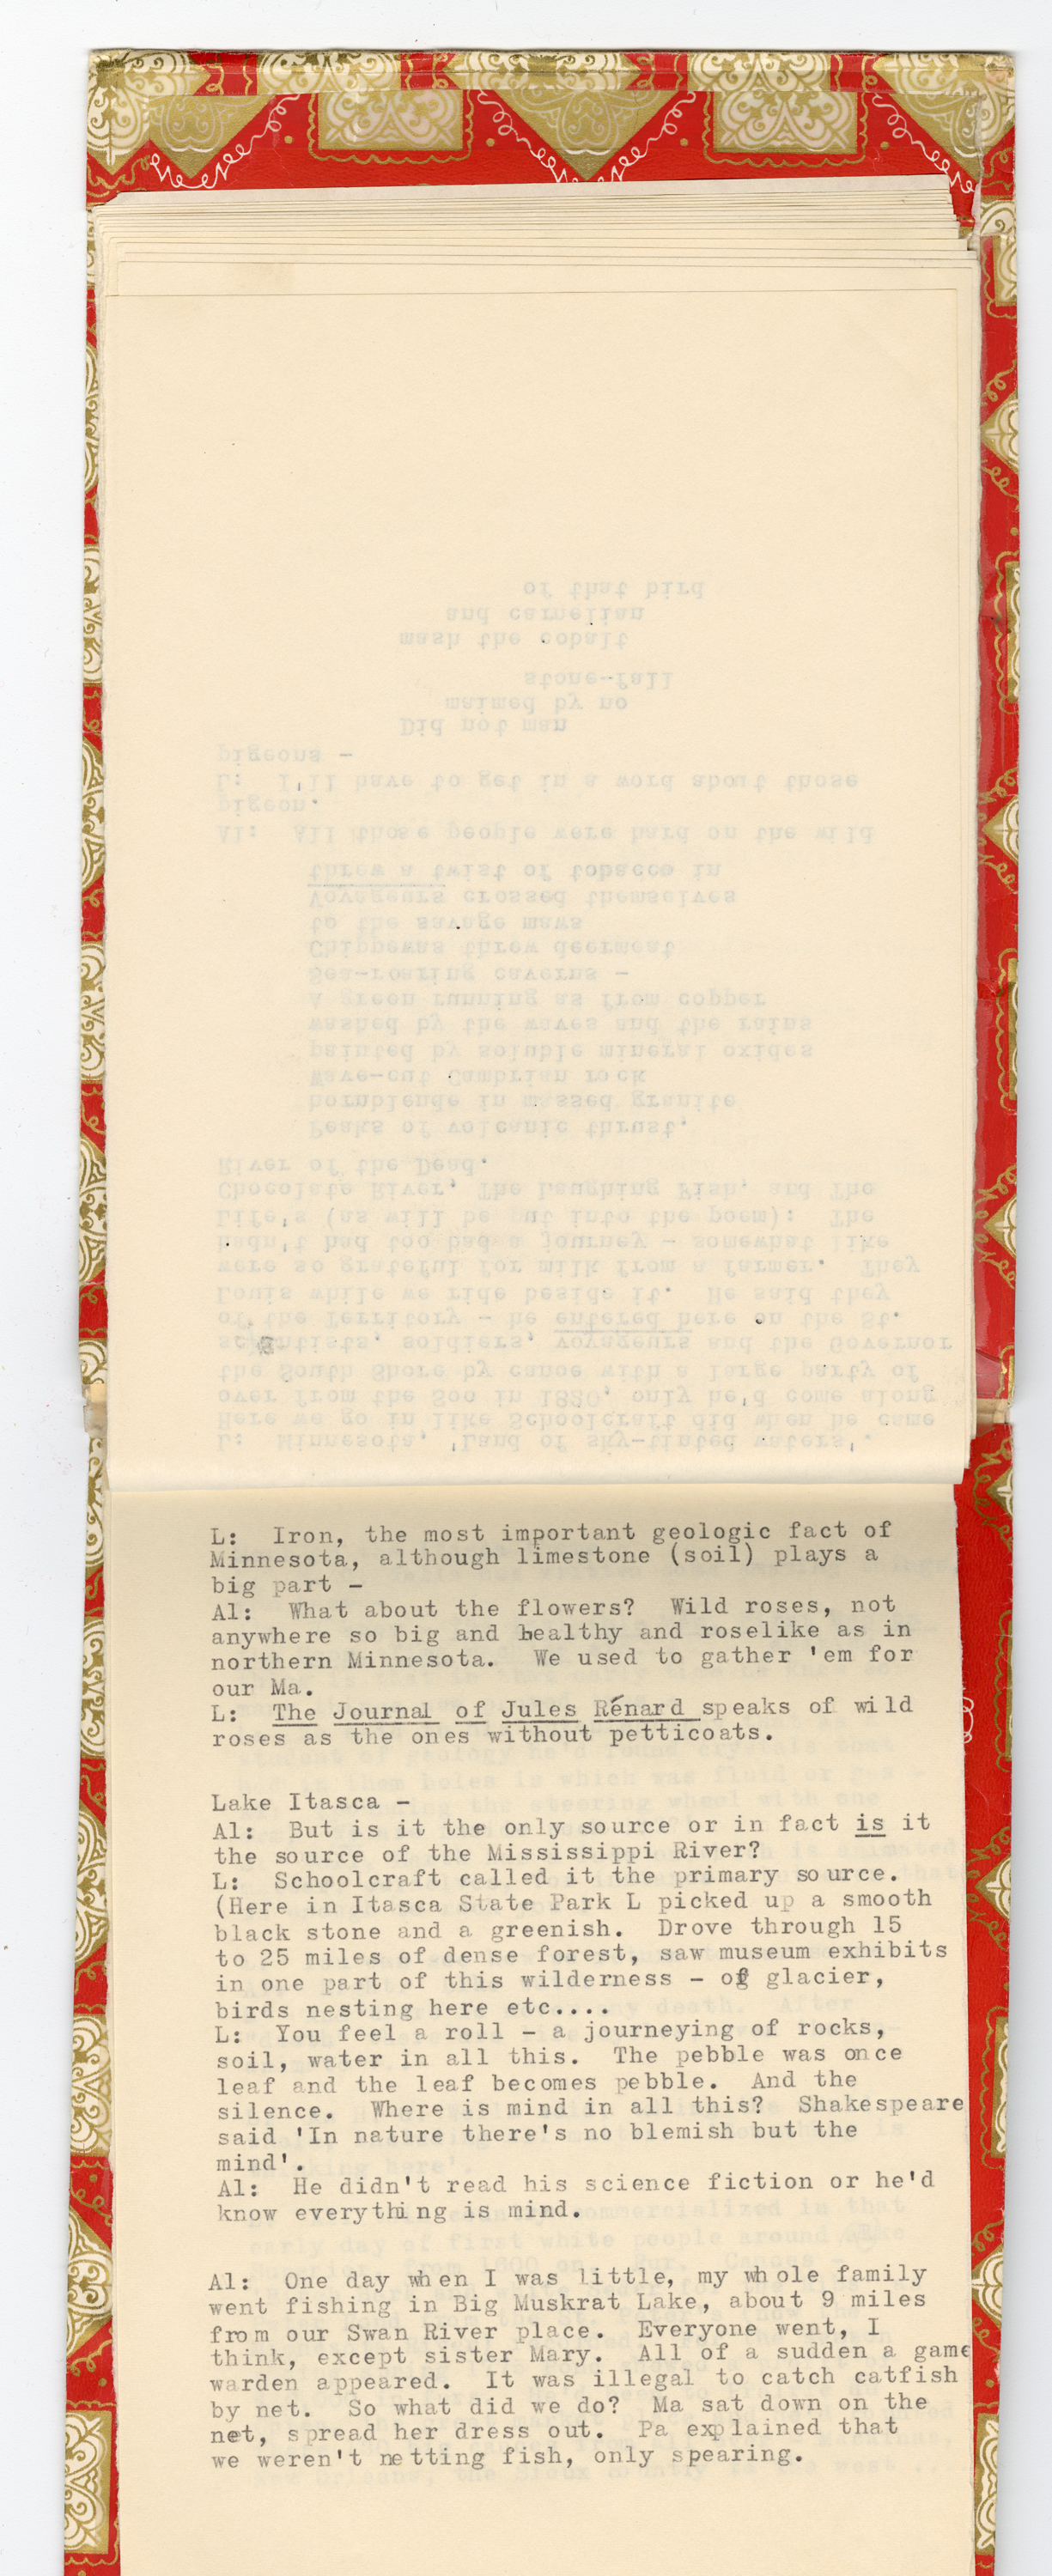 L:  Iron, the most important geologic fact of
Minnesota, although limestone (soil) plays a
big part -
Al:  What about the flowers?  Wild roses, not
anywhere so big and healthy and roselike as in
northern Minnesota.  We used to gather 'em for
our Ma.
L:  The Journal of Jules Rénard speaks of wild
roses as the ones without petticoats.
Lake Itasca -
Al:  But is it the only source or in fact is it
the source of the Mississippi River?
L:  Schoolcraft called it the primary source.
(Here in Itasca State Park L picked up a smooth
black stone and a greenish.  Drove through 15
to 25 miles of dense forest, saw museum exhibits
in one part of this wilderness - of glacier,
birds nesting here etc....
L:  You feel a roll - a journeying of rocks,
soil, water in all this.  The pebble was once
leaf and the leaf becomes pebble.  And the
silence.  Where is mind in all this?  Shakespeare
said 'In nature there's no blemish but the
mind'.
Al:  He didn't read his science fiction or he'd
know everything is mind.
Al:  One day when I was little, my whole family
went fishing in Big Muskrat Lake, about 9 miles
from our Swan River place.  Everyone went, I
think, except sister Mary.  All of a sudden a game
warden appeared.  It was illegal to catch catfish
by net.  So what did we do?  Ma sat down on the
net, spread her dress out.  Pa explained that
we weren't netting fish, only spearing.